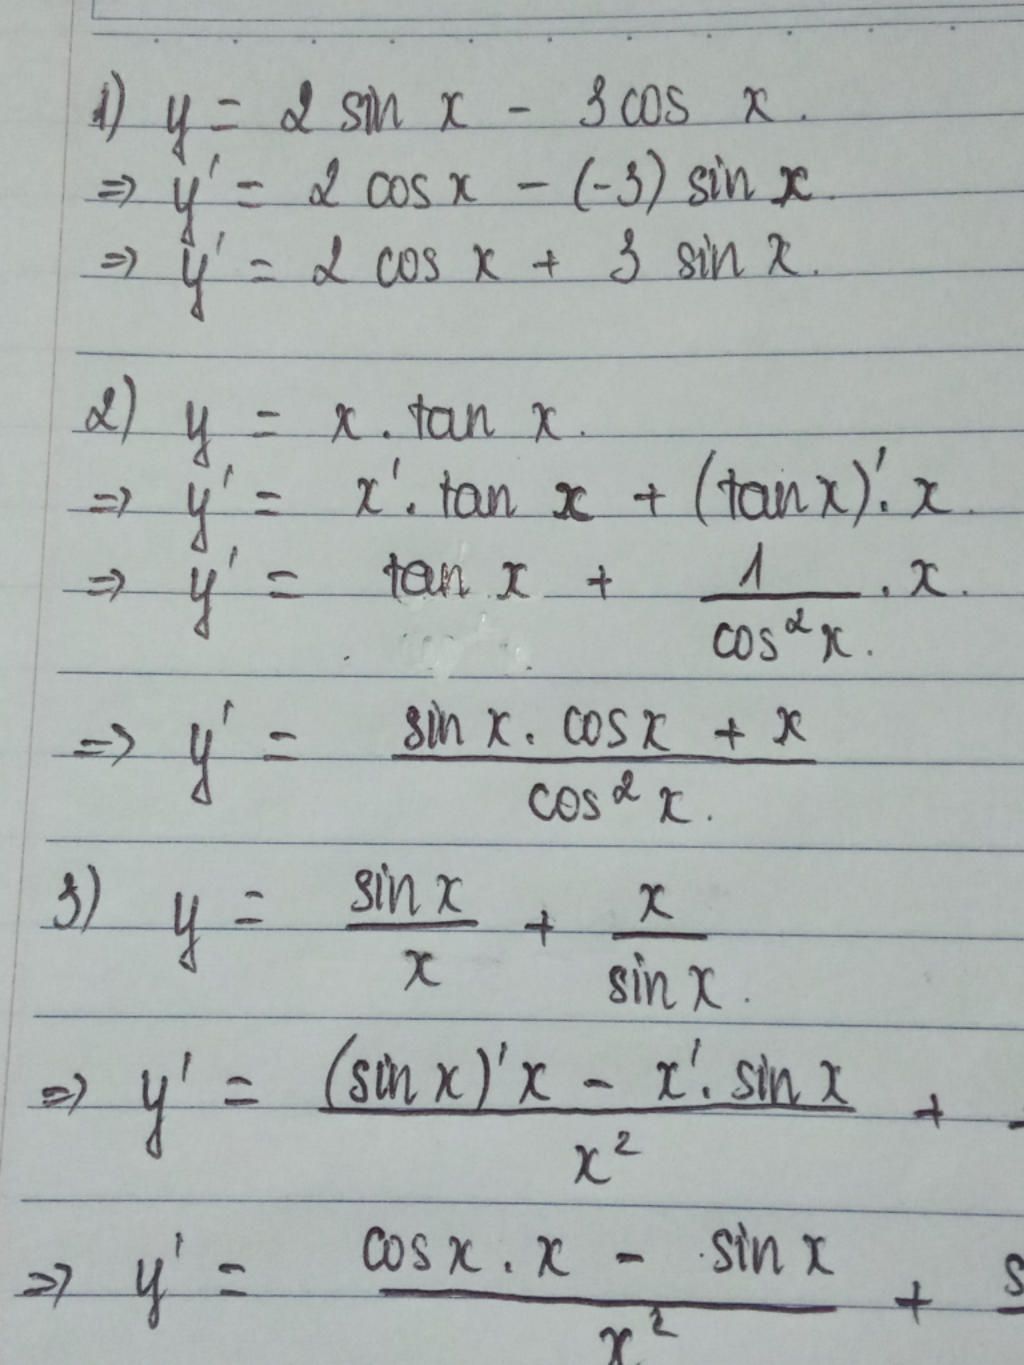 1) y = 2 sin x - 3 cos x.
⇒ y' = 2 cos x - (-3) sin x.
⇒ y' = 2 cos x + 3 sin x.
2) y = x . tan x.
⇒ y' = x' . tan x + (tan x)' . x.
⇒ y' = tan x + 1/cos²x . x.
⇒ y' = (sin x . cos x + x)/cos² x.
3) y = sin x/x + x/sin x.
⇒ y' = ((sin x)' x - x' . sin x)/x² +
⇒ y' = (cos x . x - sin x)/x² + s